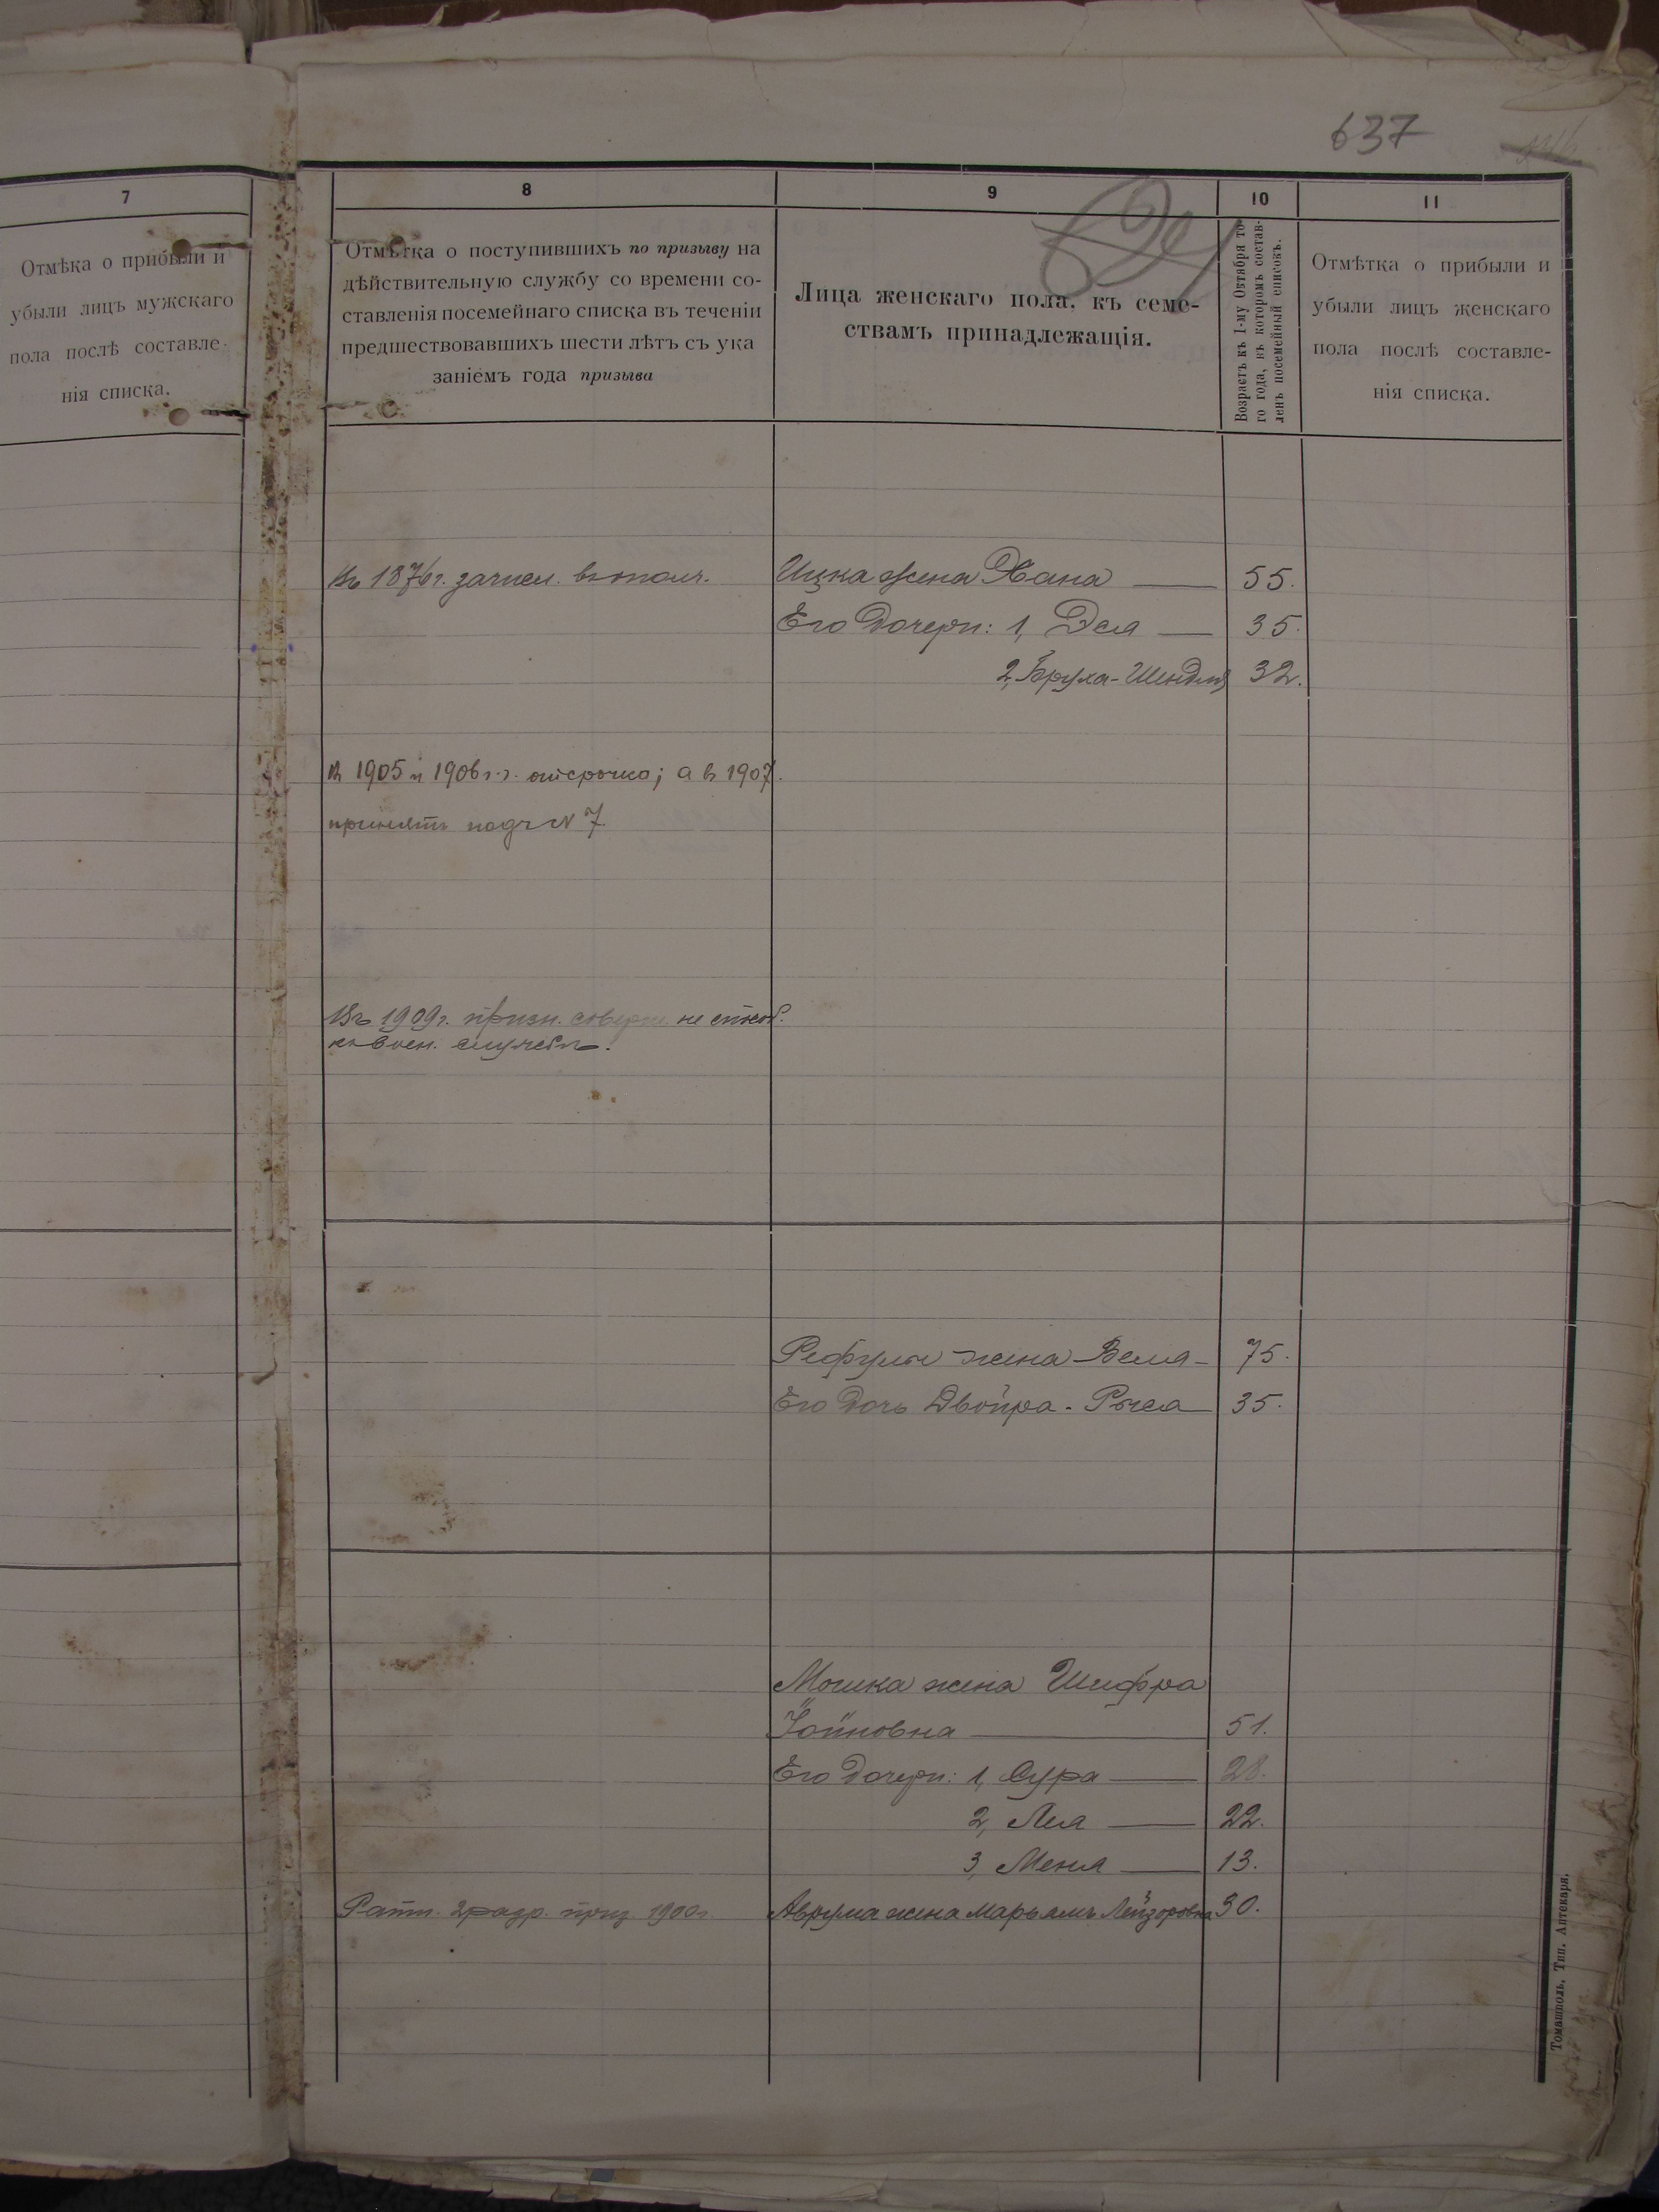 637
7
8
9
10
11
Отмѣка о прибыли и
убыли лицъ мужскаго
пола послѣ составле-
нія списка.
Отмѣтка о поступившихъ по призыву на
дѣйствительную службу со времени со-
ставленія посемейнаго списка въ теченіи
предшествовавшихъ шести лѣтъ съ ука
заніемъ года призыва
Лица женскаго пола, къ семе-
ствамъ принадлежащія.
Возрастъ къ 1-му Октября то-
го года, въ которомъ состав-
ленъ посемейный списокъ.
Отмѣтка о прибыли и
убыли лицъ женскаго
пола послѣ составле-
нія списка.
Въ 1876 г. зачисл. въ ополч. Ицка жена Хана 55.
Его дочери: 1, Эся 35.
2, Бруха-Шендля 32.
В 1905 и 1906 г.г. отсрочка; а в 1907
принятъ по N 7
Въ 1909 г. призн. соверш. не способ.
къ воен. службѣ.
жена Веля 75.
Его дочь Двойра-Рыса 35.
Мошка жена Шифра
Іойновна 51.
Его дочери: 1, Сура 28.
2, Лея 22.
3, Меня 13.
Ратн. 2 разр. приз 1900 г. Аврума жена Марьямъ Лейзоровна 30.
Томашполь, Тип. Аптекаря.